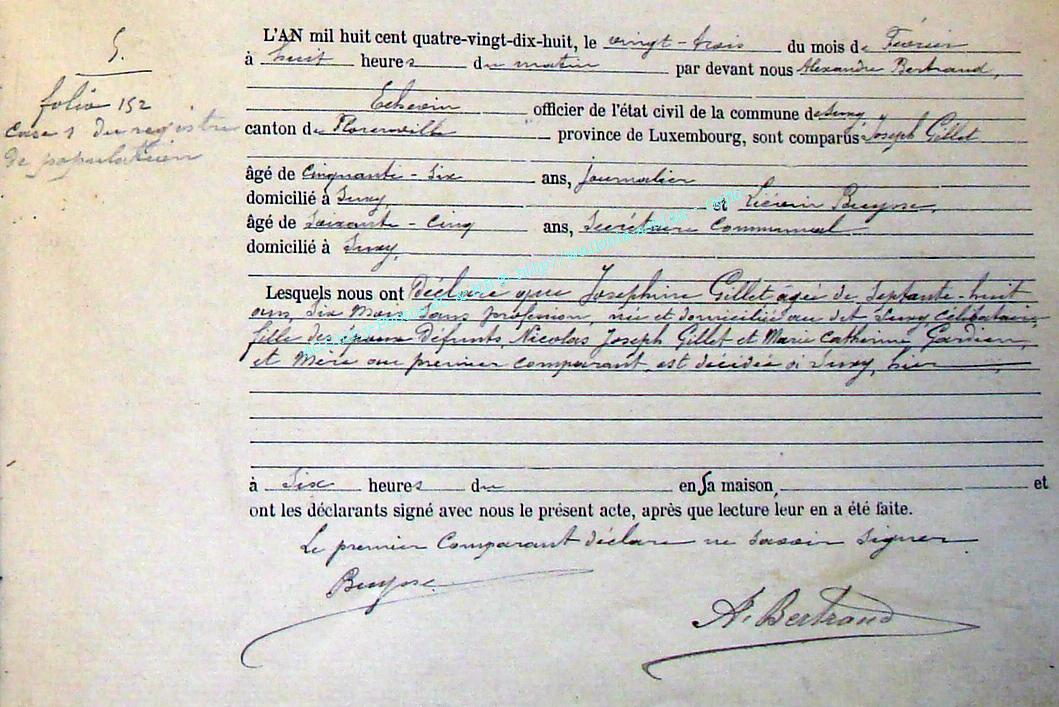 5.
folio 152
case 1 du registre
de population
L'AN mil huit cent quatre-vingt-dix-huit, le vingt-trois du mois de Février
à huit heures du matin par devant nous Alexandre Bertrand,
Echevin officier de l'état civil de la commune de Suxy
canton de Florenville province de Luxembourg, sont comparus Joseph Gillet
âgé de Cinquante-Six ans, journalier
domicilié à Suxy, et Liévin Buysse,
âgé de Soixante-Cinq ans, Secrétaire Communal
domicilié à Suxy,
Lesquels nous ont Déclaré que Joséphine Gillet âgée de Septante-huit
ans, Six Mois Sans profession, née et domiciliée au dit Suxy Célibataire,
fille des époux Défunts, Nicolas Joseph Gillet et Marie Catherine
et Mère au premier comparant, est décédée à Suxy, hier
à Six heures du en Sa maison, et
ont les déclarants signé avec nous le présent acte, après que lecture leur en a été faite.
Le premier Comparant déclare ne Savoir Signer
Buysse
A. Bertrand